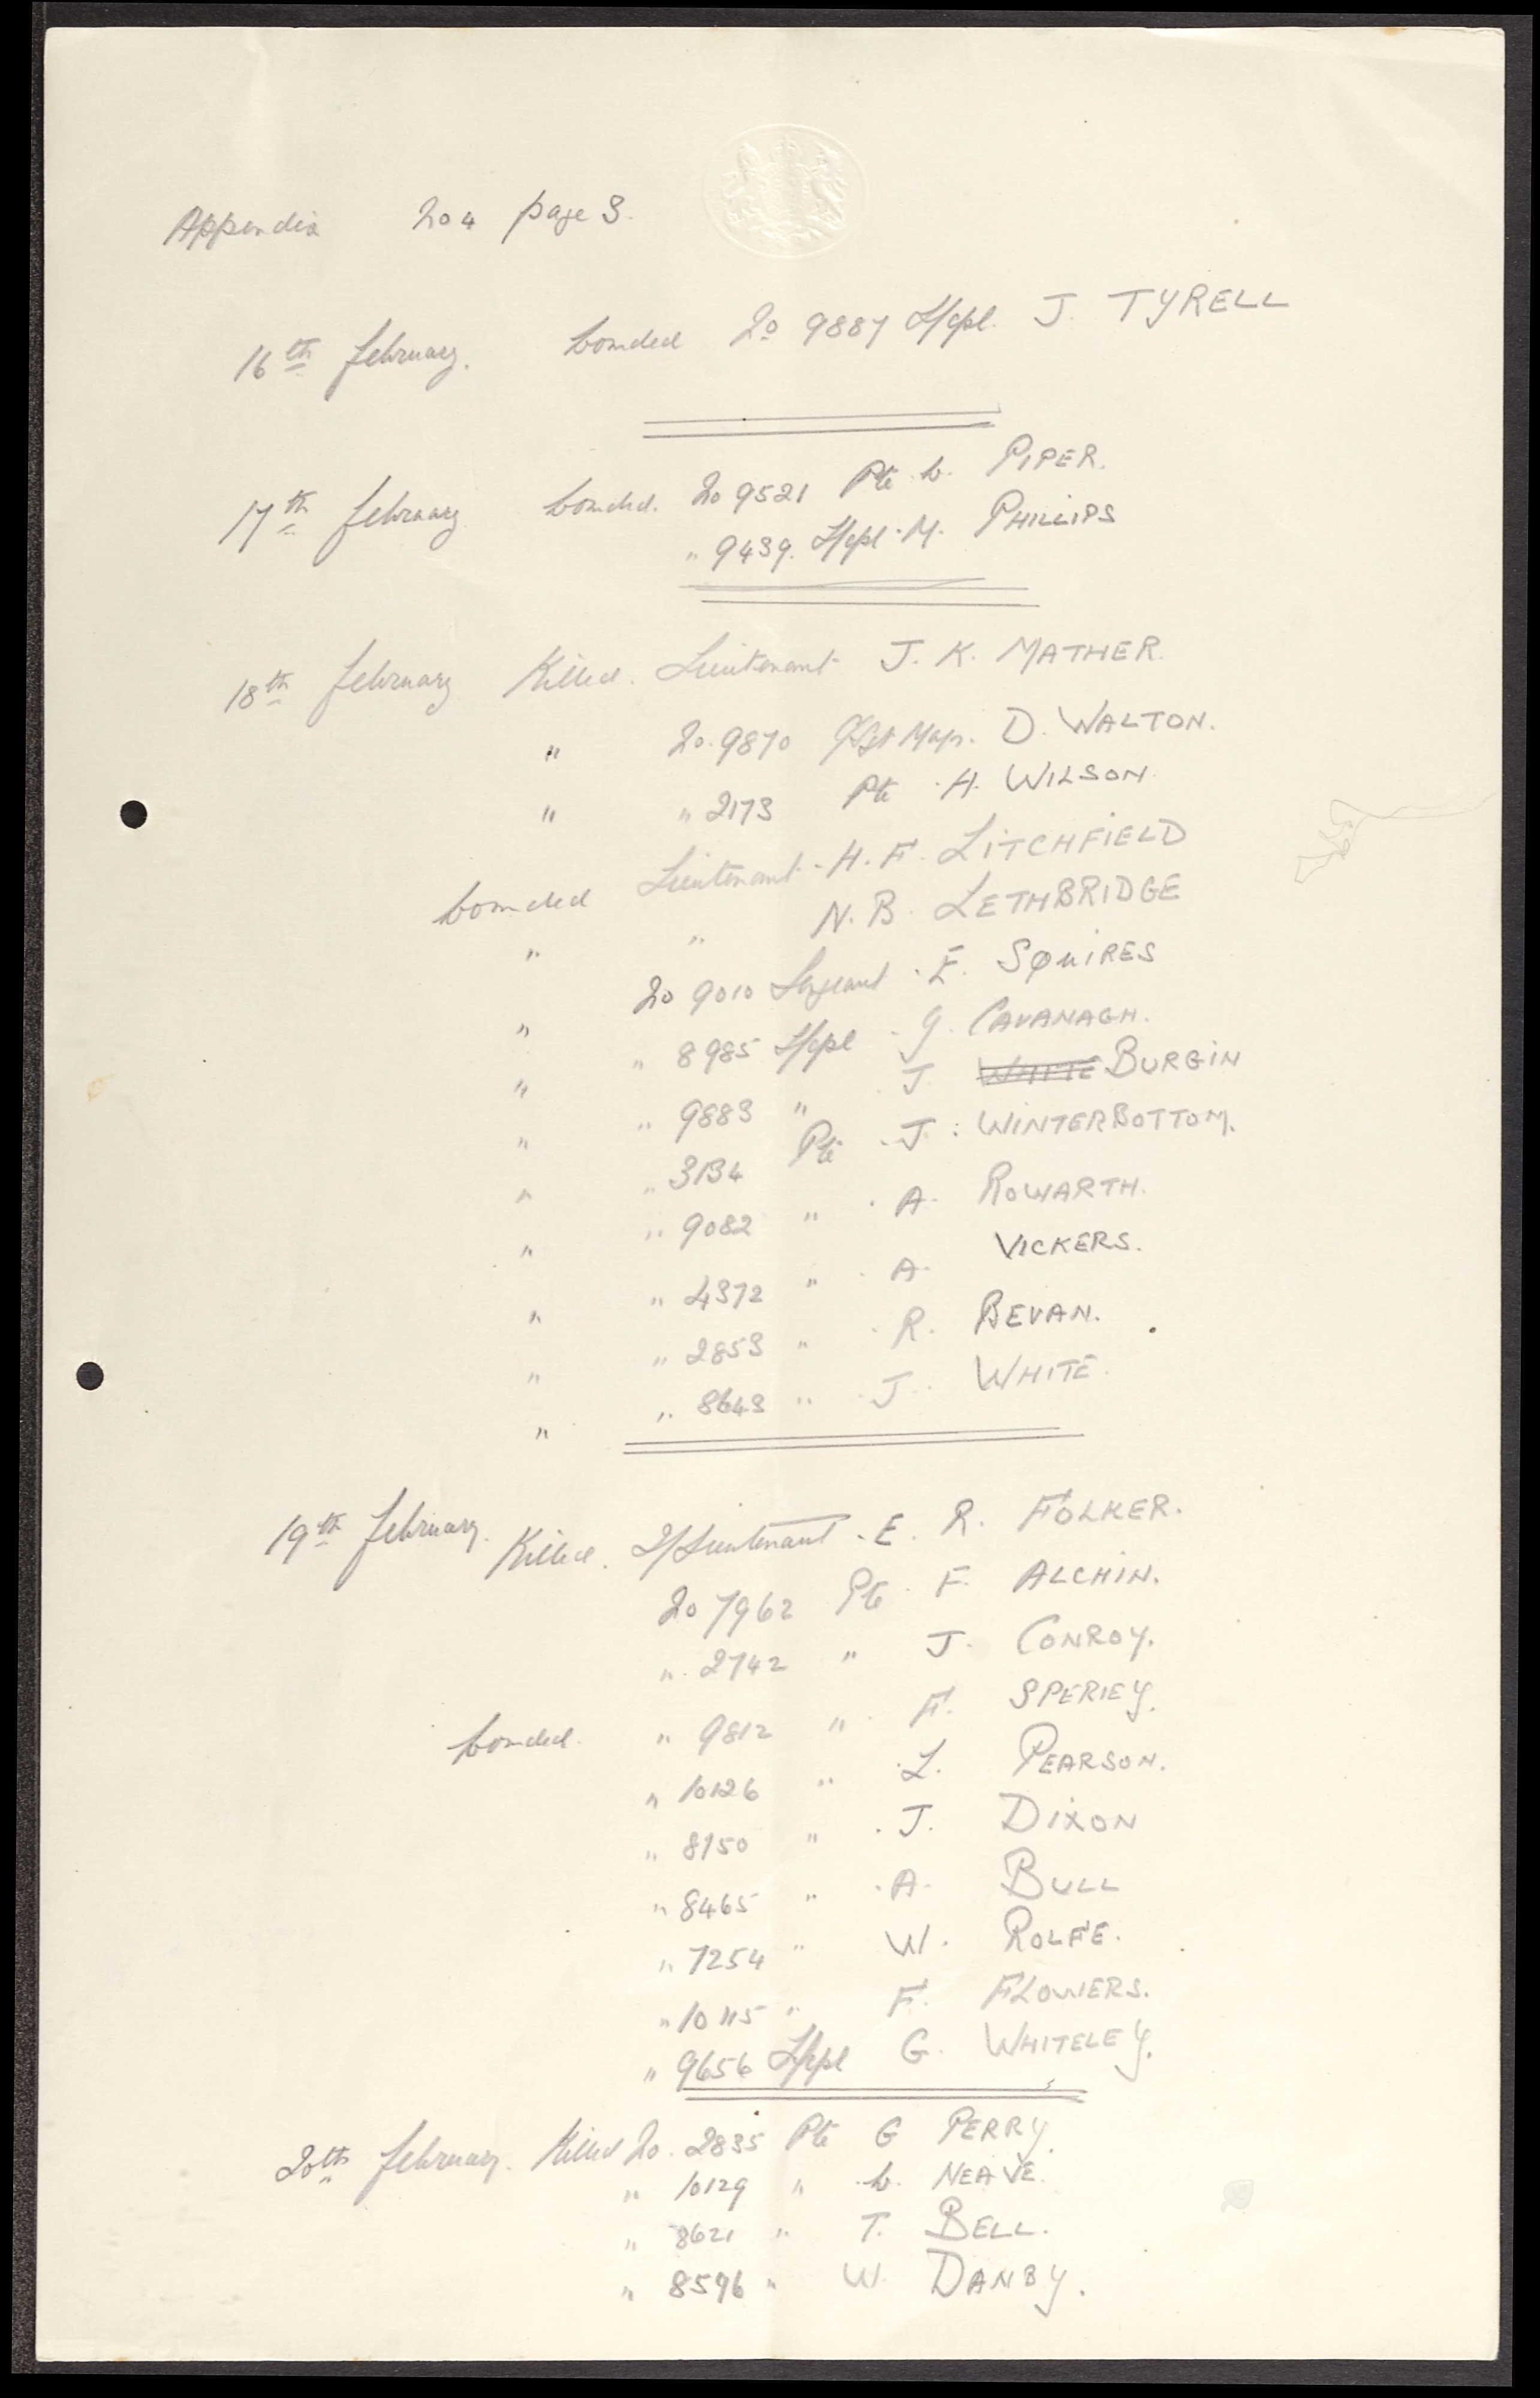 Appendix No 4 page 3.
16th February. Wounded No 9887 L/Cpl. J. TYRELL
17th February Wounded. No 9521 Pte W. PIPER.
" 9439. L/Cpl. M. PHILLIPS
18th February Killed. Lieutenant J. K. MATHER.
" No. 9870 Maj. D. WALTON.
" " 2173 Pte H. WILSON
Wounded Lieutenant. H. F. LITCHFIELD
" " N. B. LETHBRIDGE
" No 9010 Sergeant. E. SQUIRES
" " 8985 L/Cpl G. CAVANAGH.
" " 9883 " J WHITE BURGIN
" " 3134 Pte. J. WINTERBOTTOM.
" " 9082 " A. ROWARTH.
" " 4372 " A. VICKERS.
" " 2853 " R. BEVAN.
" " 8643 " J. WHITE.
19th February. Killed. 2/Lieutenant. E. R. FOLKER.
No 7962 Pte F. ALCHIN.
" 2742 " J. CONROY.
Wounded. " 9812 " F. SPERIEY.
" 10126 " L. PEARSON.
" 8150 " J. DIXON
" 8465 " A. BULL
" 7254 " W. ROLFE.
" 10115 " F. FLOWERS.
" 9656 L/Cpl G. WHITELEY.
20th February. Killed No. 2835 Pte G PERRY.
" 10129 " W. NEAVE.
" 8621 " T. BELL.
" 8596 " W. DANBY.